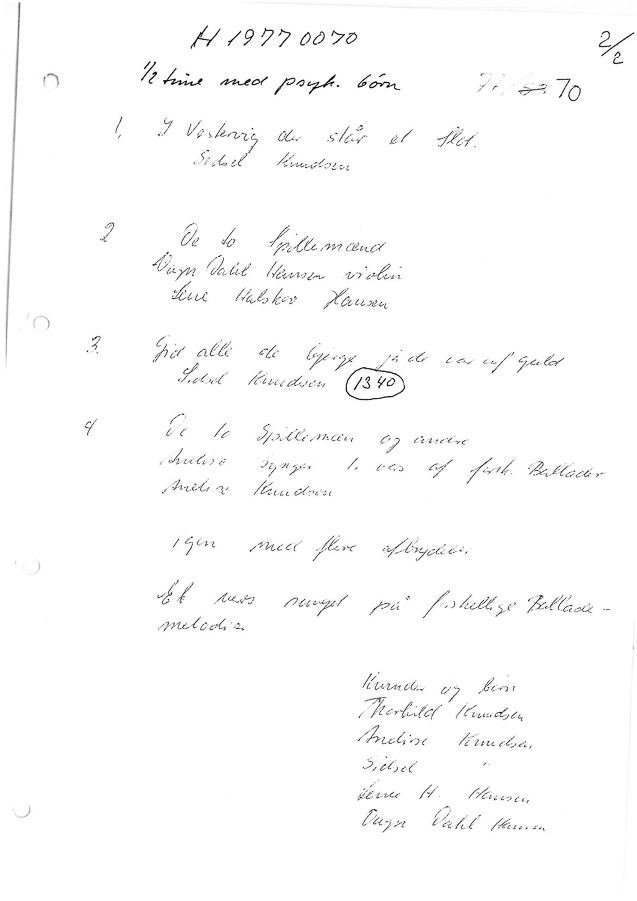 H 1977 0070
2/2
1/2 time med psyk. børn
77/ 70
1. I Vestervig der står et Slot.
Sidsel Knudsen
2 De to Spillemænd
Vagn Dahl Hansen violin
Lene Halskov Hansen
3. Gid alle de bjerge ja de var af guld
Sidsel Knudsen 1340
4 De to Spillemæn og andre
Andise synger 1. vers af forsk. Ballader
Andise Knudsen
igen med flere afbrydelser
Et vers sunget på forskellige Ballade-
melodier
Kvinder og børn
Thorkild Knudsen
Andise Knudsen
Sidsel "
Lene H. Hansen
Vagn Dahl Hansen